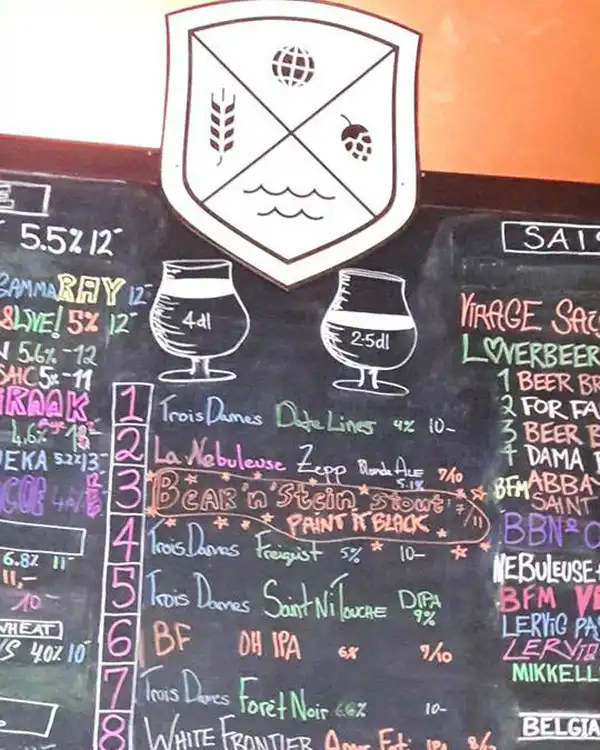 5.5% 12-
4dl
2.5dl
SAIS
GAMMARAY 12-
&LIVE! 5% 12-
5.6% -12
SAIC 5% -11
EKA 5.2% 13-
6.8% 11-
11,-
10-
WHEAT
4.0% 10-
1 Trois Dames Date Lines 4% 10-
2 La Nebuleuse Zepp Blonde Ale 5.1% 7/10
3 Bear'n'Stein Stout 7/11
PAINT IT BLACK
4 Trois Dames Freigist 5% 10-
5 Trois Dames Saint Ni Touche DIPA 9%
6 BF OH IPA 6% 7/10
7 Trois Dames Forêt Noir 6.6% 10-
8 WHITE FRONTIER IPA 8/
VIRAGE SAI
LOVERBEER
1 BEER BR
2 FOR FA
3 BEER B
4 DAMA
BFM ABBA
SAINT
BBNo
NEBULEUSE
BFM
LERVIG PA
LERVIG
MIKKELL
BELGIA